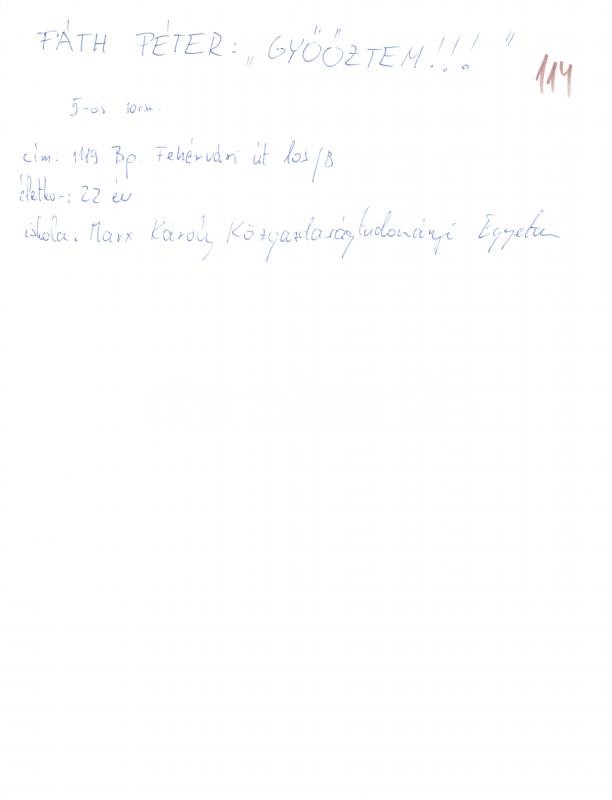 FÁTH PÉTER: „GYŐŐZTEM!!!"
114
5-ös sorsz.
cím: 1119. Bp. Fehérvári út
életkor: 22 év
iskola: Marx Károly Közgazdaságtudományi Egyetem